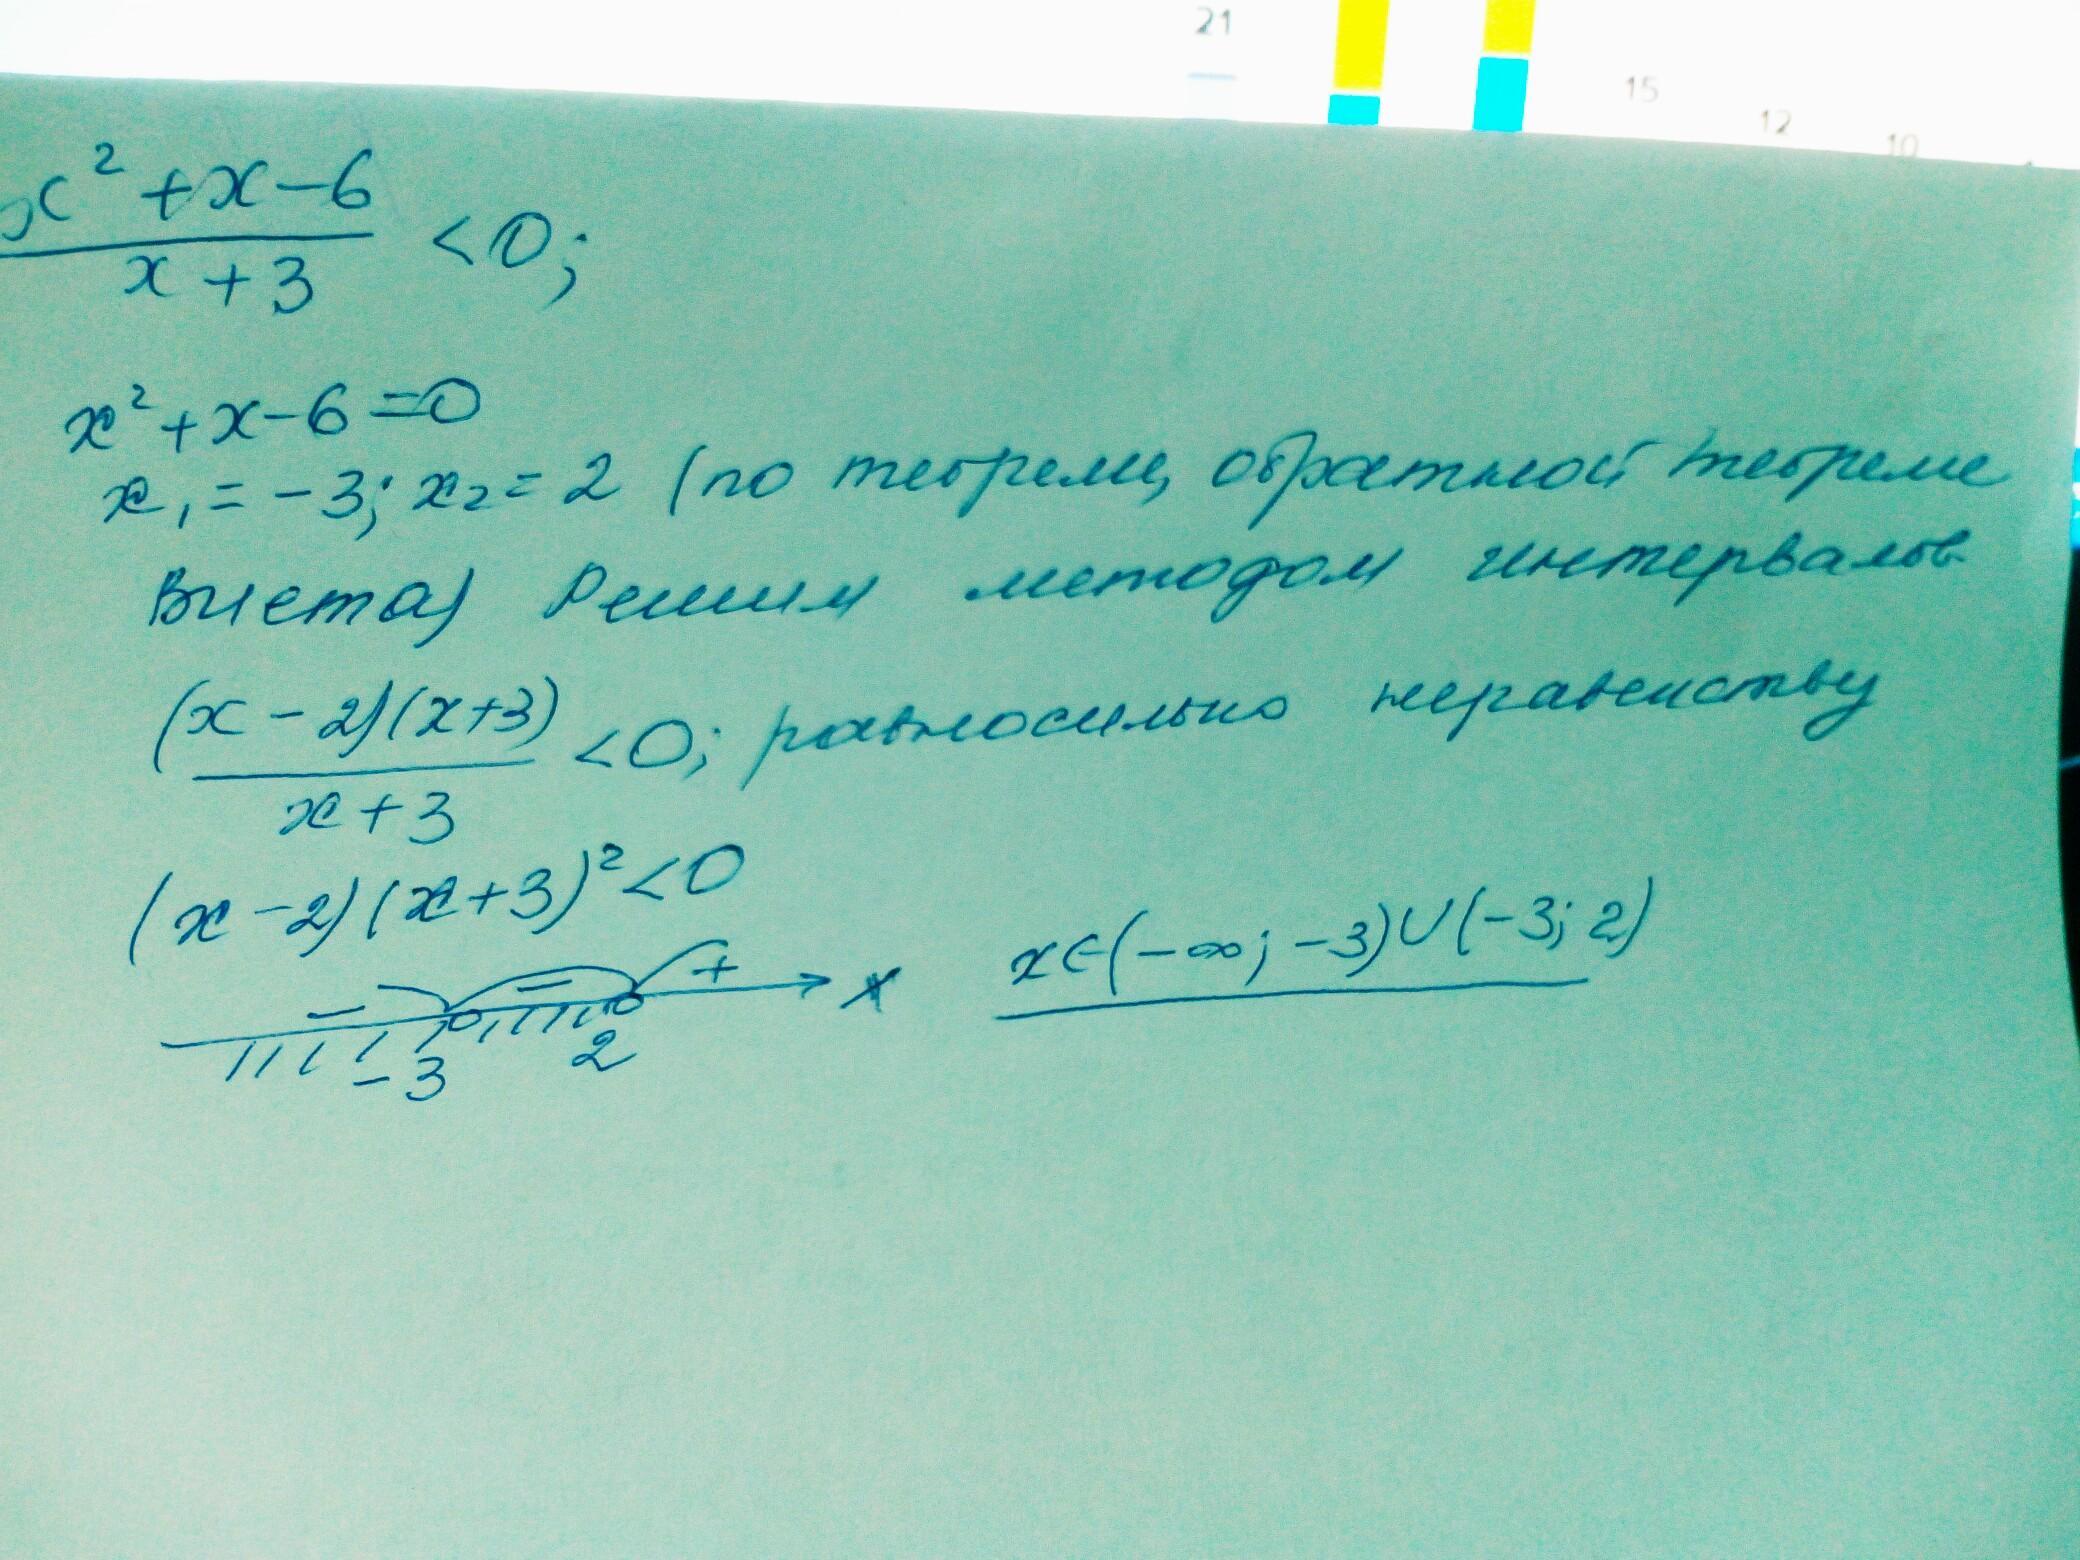 21
15
12
10
x² + x − 6
x + 3
< 0;
x² + x − 6 = 0
x₁ = −3; x₂ = 2 (по теореме, обратной теореме
Виета) Решим методом интервалов
(x − 2)(x+3)
x + 3
< 0; равносильно неравенству
(x − 2)(x+3)² < 0
− − + x
−3 2
x ∈ (−∞; −3) ∪ (−3; 2)